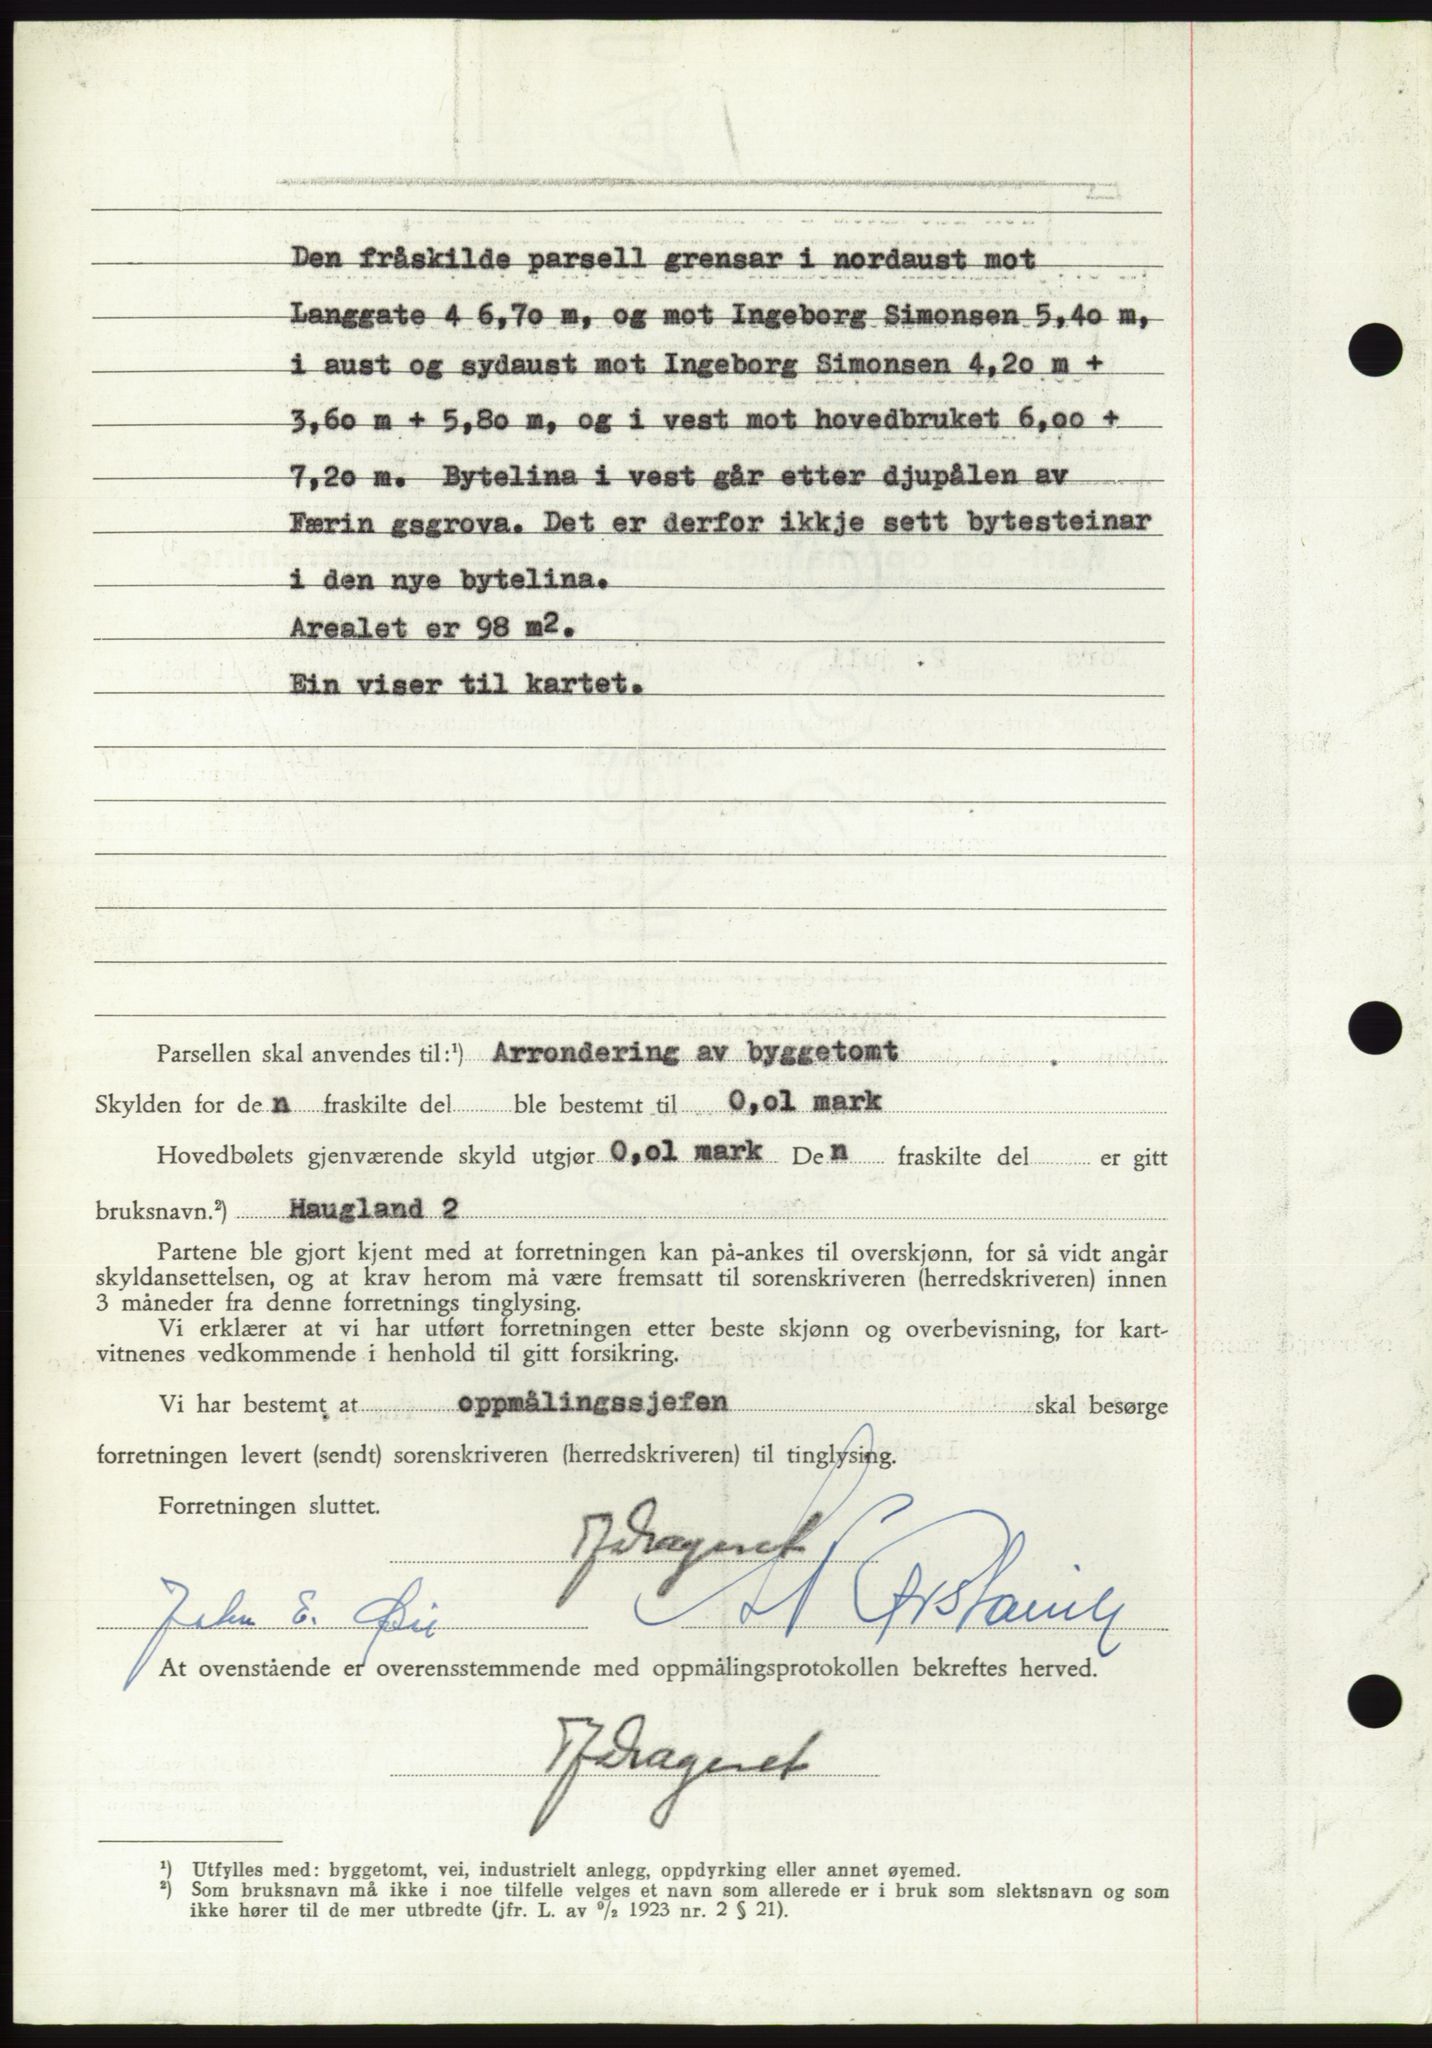 Den fråskilde parsell grensar i nordaust mot
Langgate 4 6,7o m, og mot Ingeborg Simonsen 5,4o m,
i aust og sydaust mot Ingeborg Simonsen 4,2o m +
3,6o m + 5,8o m, og i vest mot hovedbruket 6,oo +
7,2o m. Bytelina i vest går etter djupålen av
Færin gsgrova. Det er derfor ikkje sett bytesteinar
i den nye bytelina.
Arealet er 98 m2.
Ein viser til kartet.
Parsellen skal anvendes til:¹) Arrondering av byggetomt
Skylden for den fraskilte del ble bestemt til 0,o1 mark
Hovedbølets gjenværende skyld utgjør 0,o1 mark Den fraskilte del er gitt
bruksnavn.²) Haugland 2
Partene ble gjort kjent med at forretningen kan på-ankes til overskjønn, for så vidt angår
skyldansettelsen, og at krav herom må være fremsatt til sorenskriveren (herredskriveren) innen
3 måneder fra denne forretnings tinglysing.
Vi erklærer at vi har utført forretningen etter beste skjønn og overbevisning, for kart-
vitnenes vedkommende i henhold til gitt forsikring.
Vi har bestemt at oppmålingssjefen skal besørge
forretningen levert (sendt) sorenskriveren (herredskriveren) til tinglysing.
Forretningen sluttet.
John E.
At ovenstående er overensstemmende med oppmålingsprotokollen bekreftes herved.
¹) Utfylles med: byggetomt, vei, industrielt anlegg, oppdyrking eller annet øyemed.
²) Som bruksnavn må ikke i noe tilfelle velges et navn som allerede er i bruk som slektsnavn og som
ikke hører til de mer utbredte (jfr. L. av ⁹/₂ 1923 nr. 2 § 21).